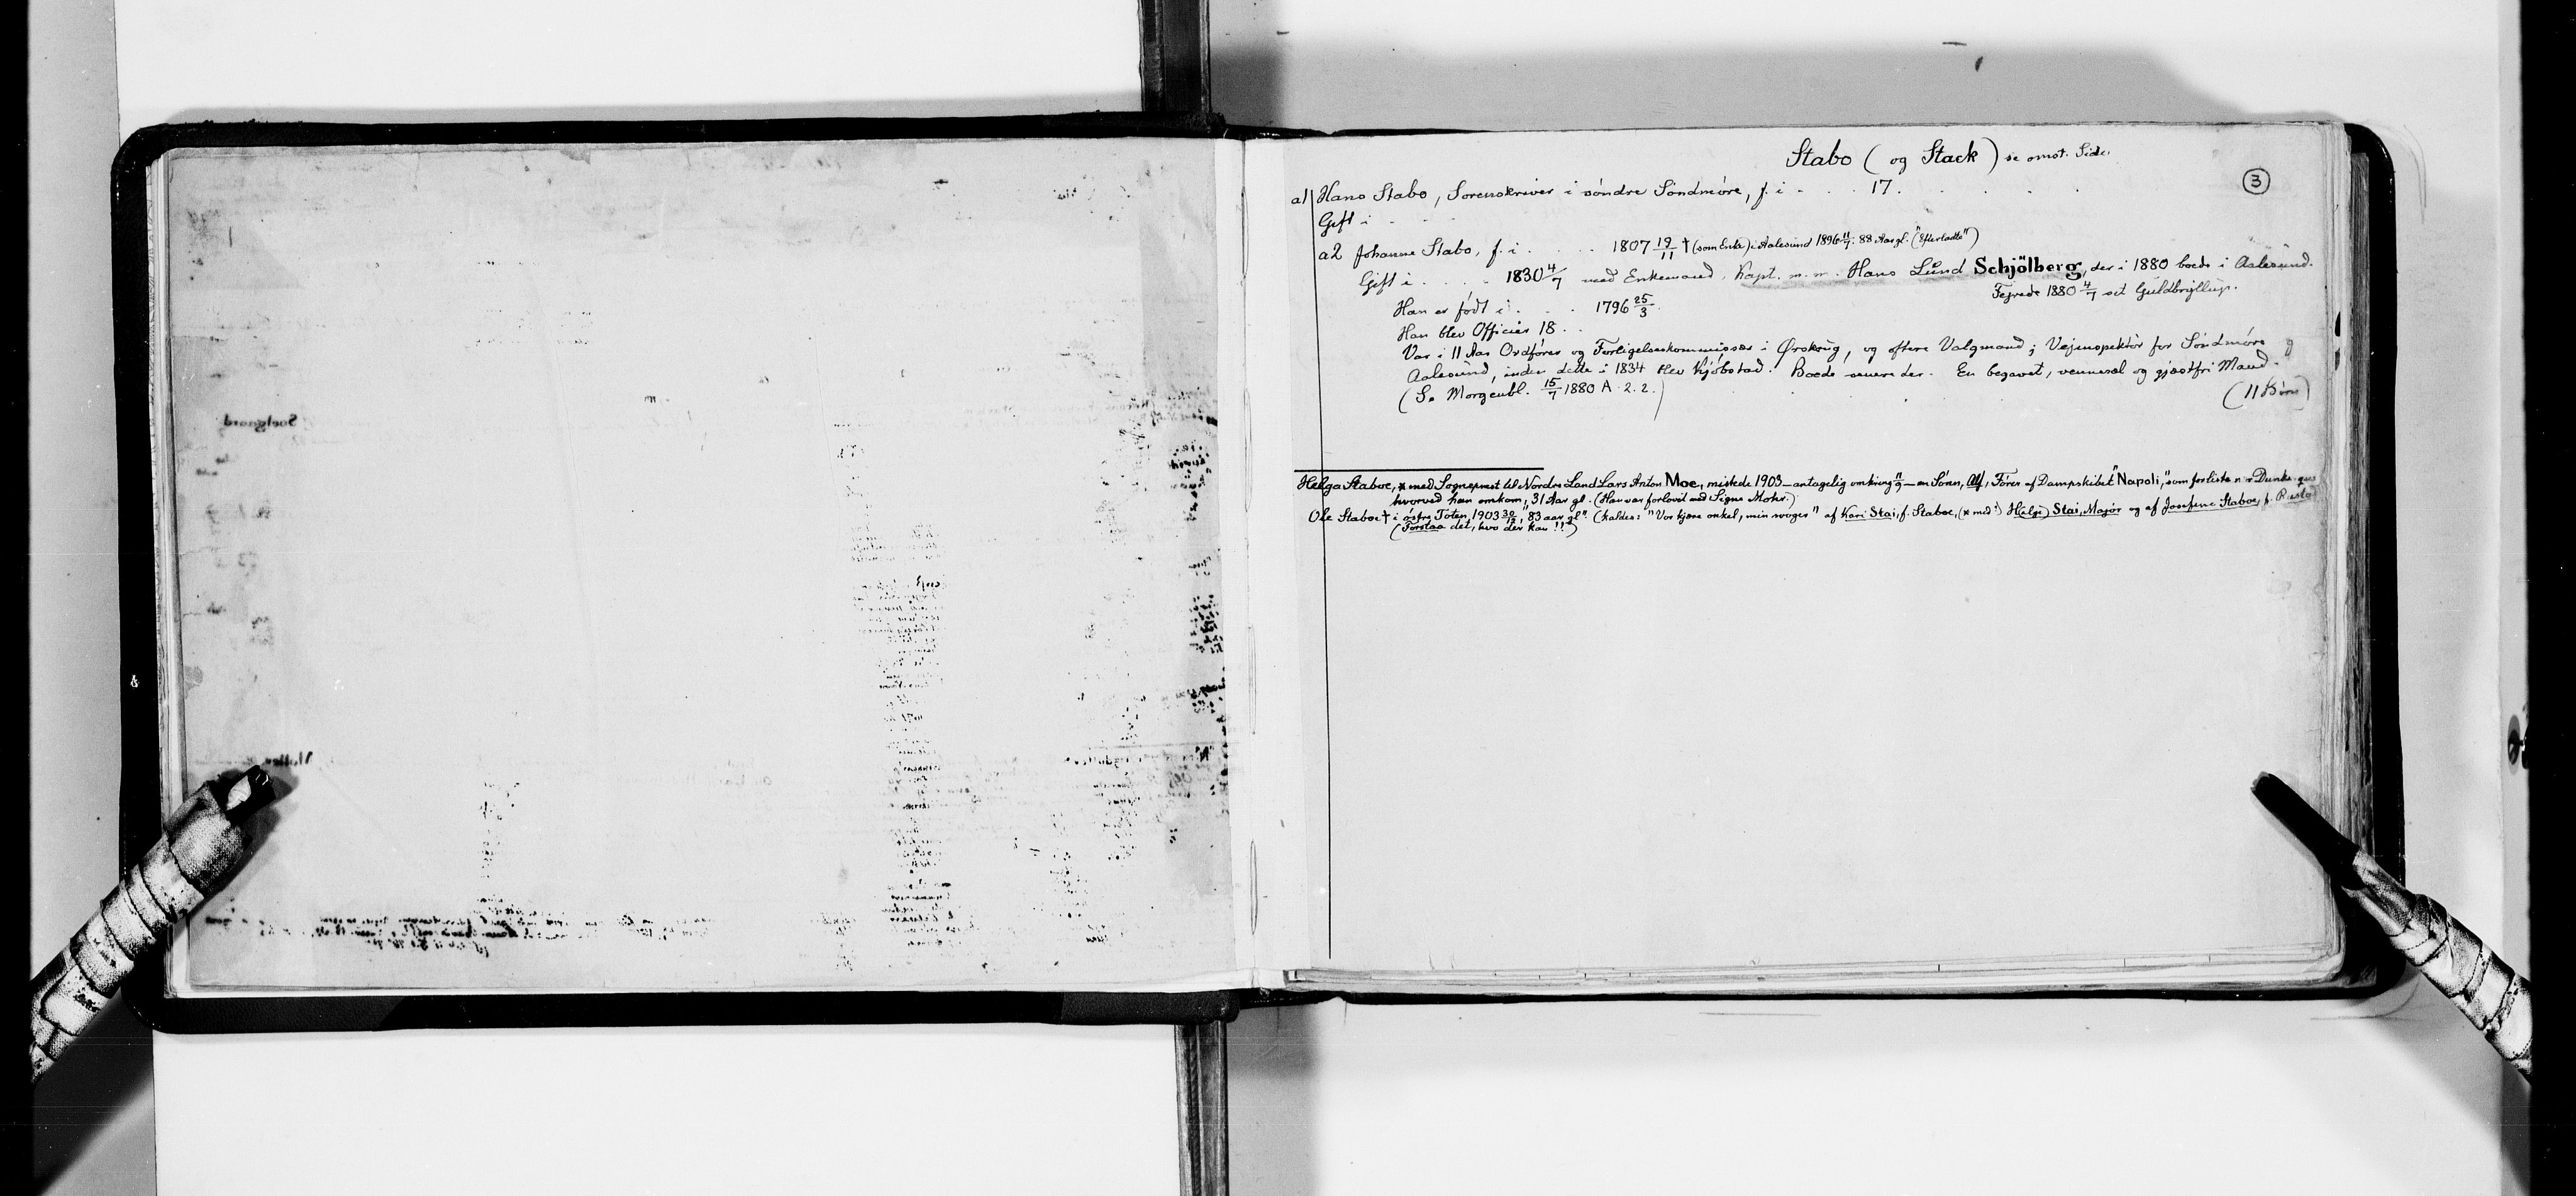 Stabo (og Stack) se omst. Side.
3
a1 Hans Stabo, Sorenskriver i söndre Söndmöre, f. i . . . 17. . . . .
Gift i . . .
a2 Johanne Stabo, f. i . . . . 1807 19/11 † (som Enke) i Aalesund 1896 11/7: 88 Aar gl. ("Efterladte")
Gift i . . . . 1830 4/7 med Enkemand, Kapt. m. m. Hans Lund Schjölberg, der i 1880 boede i Aalesund.
Fejrede 1880 4/7 sit Guldbryllup.
Han er født i . . . 1796 25/3.
Han blev Officier 18 . .
Var i 11 Aar Ordfører og Forligelseskommissær i Ørskoug, og oftere Valgmand; Vejinspektör for Söndmöre og
Aalesund, inden dette i 1834 blev Kjöbstad. Boede senere der. En begavet, vennesæl og gjæstfri Mand.
(Se Morgenbl. 15/7 1880 A. 2. 2.)
(11 Börn)
Helga Staboe, * med Sogneprest til Nordre Land Lars Anton Moe, mistede 1903 – antagelig omkring 11/9 – en Sönn, Alf, Förer af Dampskibet "Napoli," som forliste
hvorved han omkom, 31 Aar gl. (Han var forlovet med Signe Mohr.)
Ole Staboe † i östre Toten, 1903 30/12, "83 aar gl." (kaldes: "Vor kjære onkel, min svoger" af Kari Stai, f. Staboe, (* med?) Helge) Stai, Major og af Josefine Staboe, f.
(Forstaa det, hvo der kan!!")